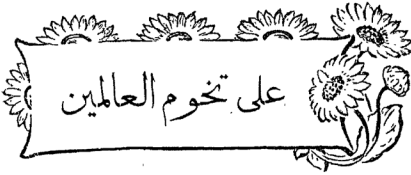 على تخوم العالمين